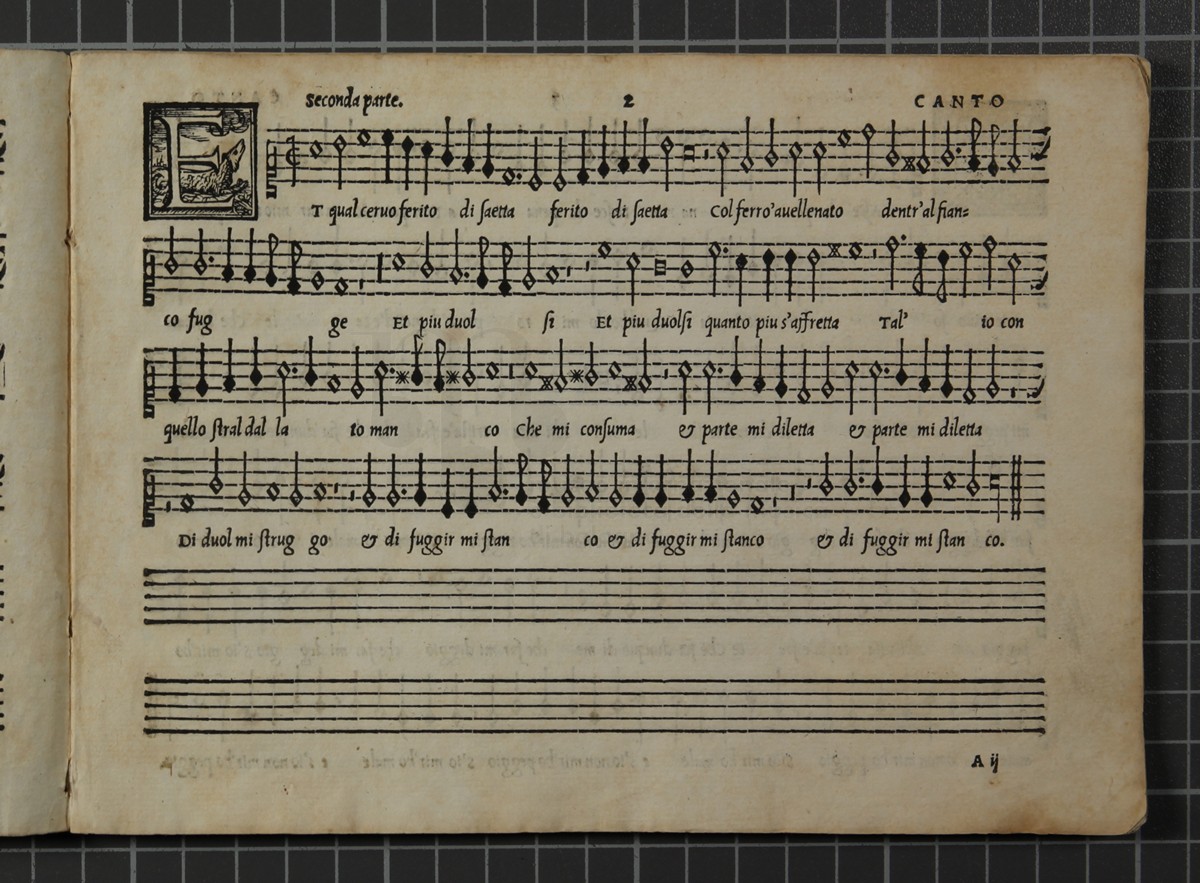 Seconda parte. 2 CANTO
ET qual ceruo ferito di saetta ferito di saetta Col ferro'auellenato dentr'al fian=
co fug ge Et piu duol si Et piu duolsi quanto piu s'affretta Tal' io con
quello stral dal la to man co Che mi consuma & parte mi diletta & parte mi diletta
Di duol mi strug go & di fuggir mi stan co & di fuggir mi stanco & di fuggir mi stan co.
A ij